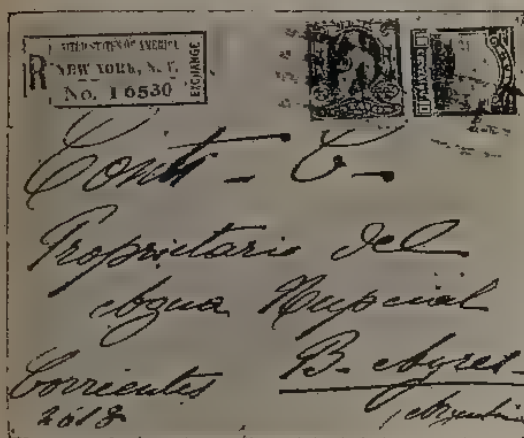 UNITED STATES OF AMERICA
R
NEW YORK, N. Y.
No. 16530
EXCHANGE
Conti - C -
Proprietario del
Agua Nupcial
Corrientes
B. Ayres
2618
Argentina